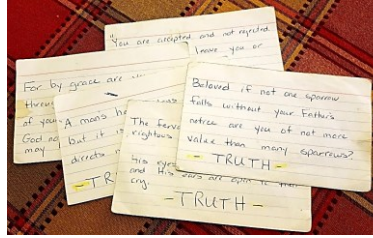 You are accepted and not rejected
leave you or
For by grace are
throu
of you
God no
may
A mans he
but it is
directs
- TR
The ferve
rightous
His eyes
and His ears are open to their
cry.
- TRUTH -
Beloved if not one sparrow
falls without your Father's
notice are you of not more
value than many sparrows?
- TRUTH -